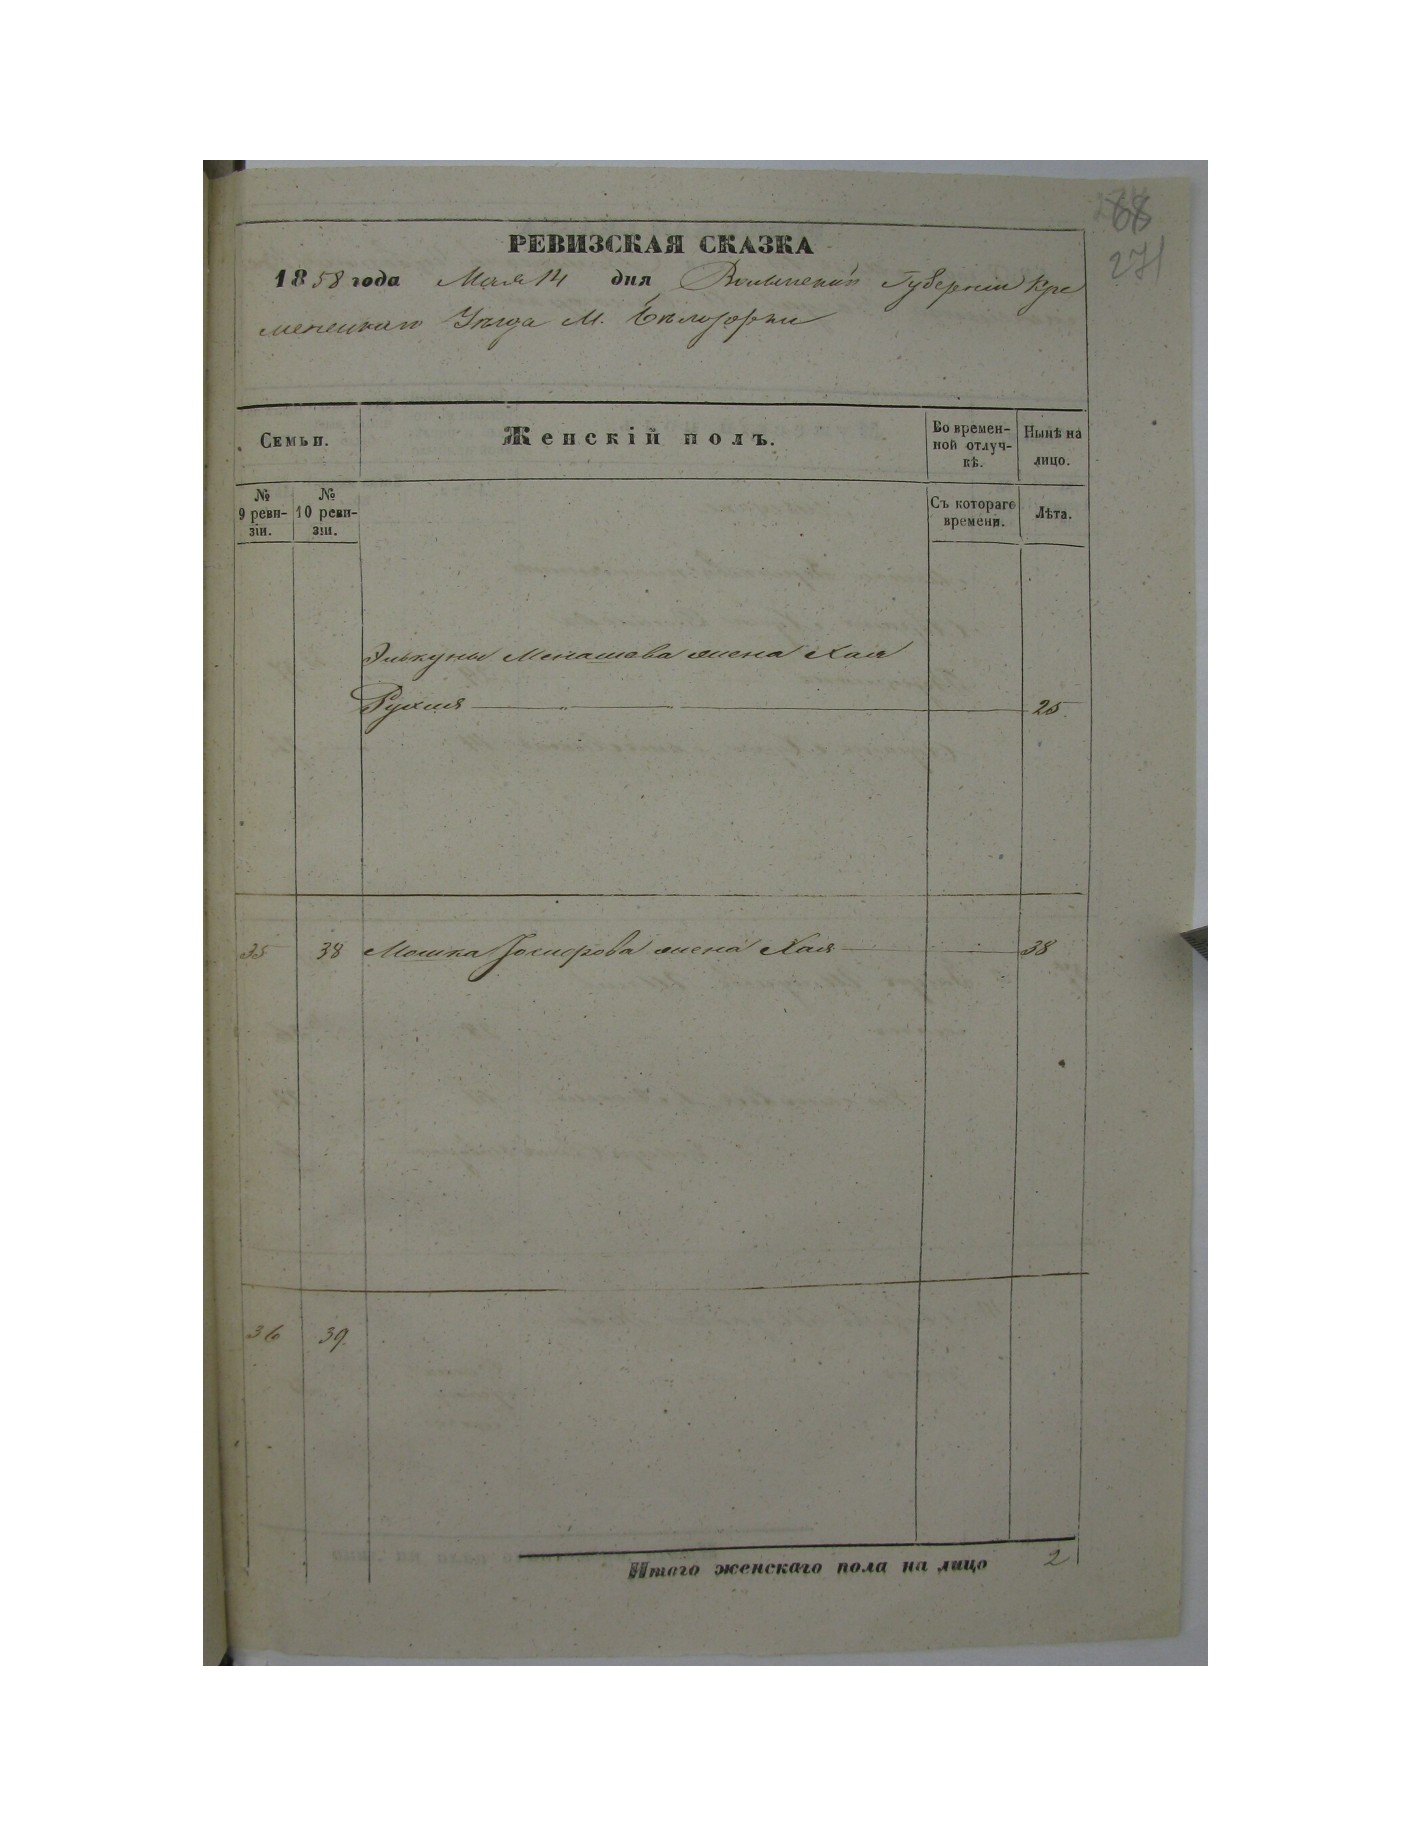 271
РЕВИЗСКАЯ СКАЗКА
1858 года Мая 14 дня Волынской Губерніи Кре
менецкаго Уѣзда М. Бѣлозорки
Семьи.
Женскій полъ.
Во времен-
ной отлуч-
кѣ.
Нынѣ на
лицо.
№
9 реви-
зіи.
№
10 реви-
зіи.
Съ котораго
времени.
Лѣта.
Элькуны Менашева жена Хая
Рухля 25
35 38 Мошка Іосифова жена Хая 38
36 39
Итого женскаго пола на лицо 2